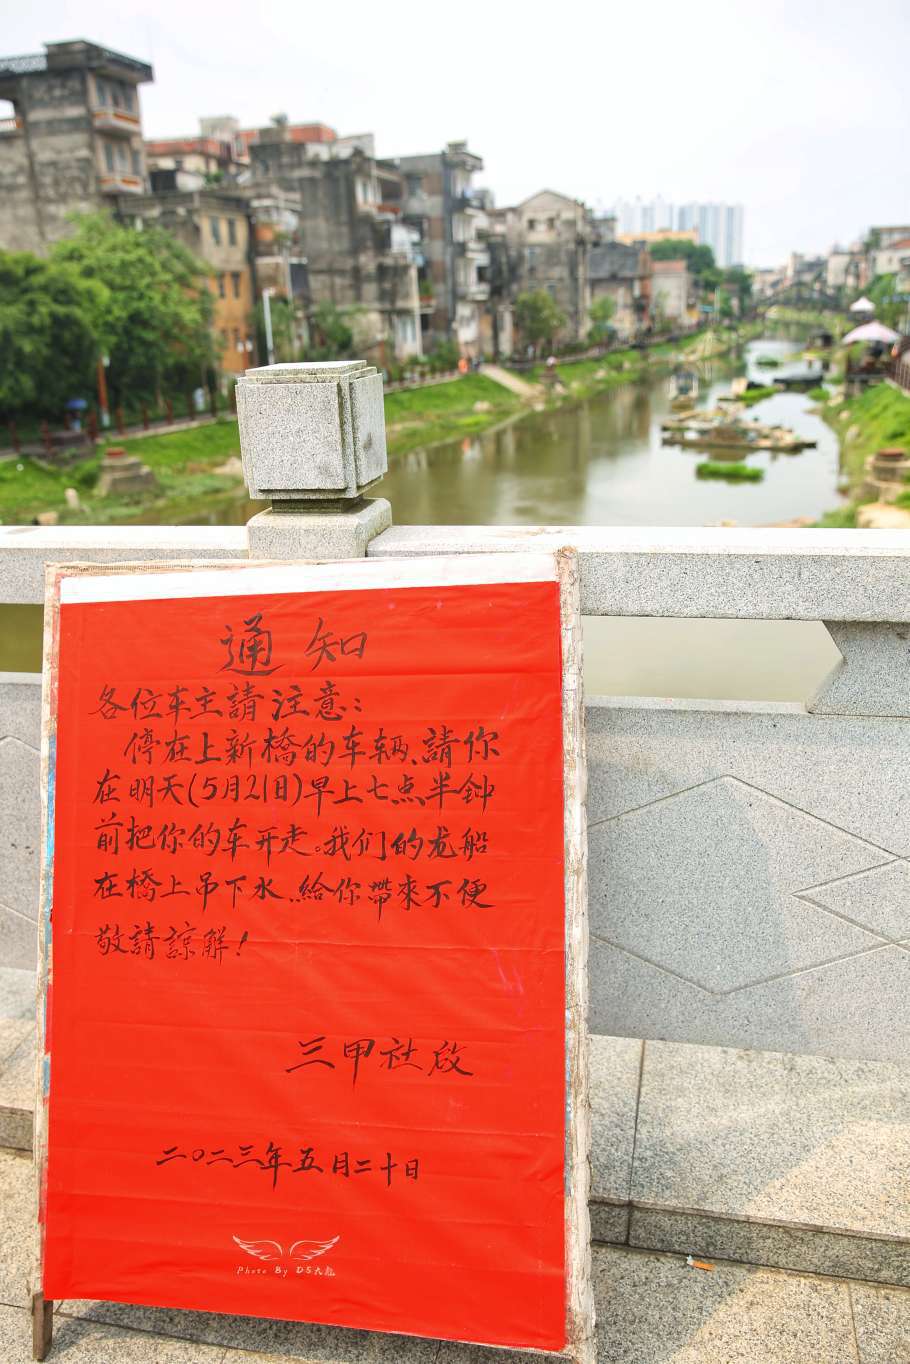 通知
各位车主請注意：
停在上新橋的车辆、請你
在明天(5月21日)早上七点半鈡
前把你的车开走。我们的龙船
在橋上吊下水，給你帶來不便
敬請諒解！
三甲社啟
二〇二三年五月二十日
Photo By DS大龍